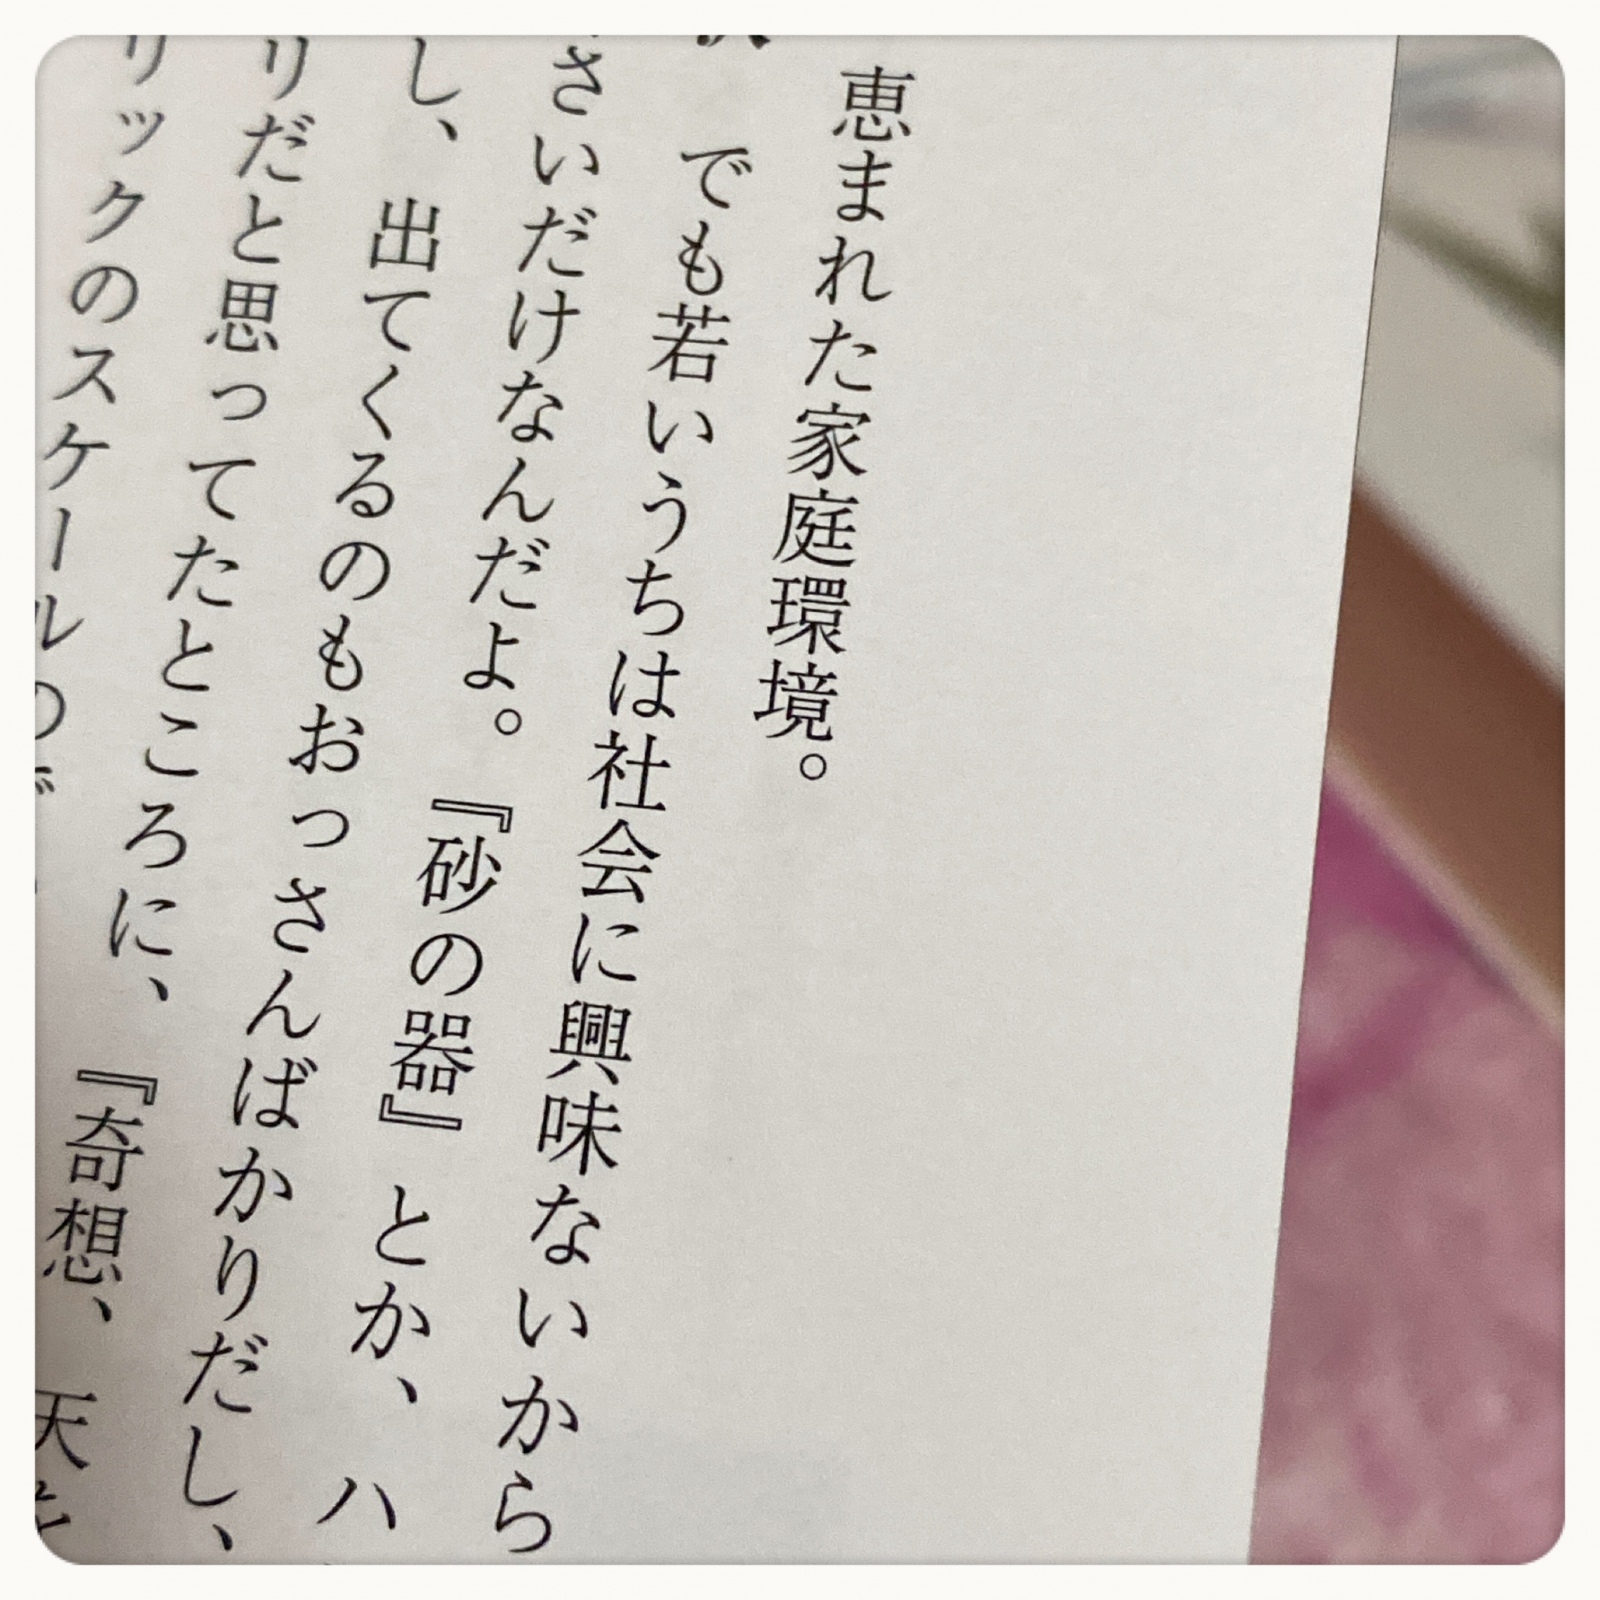 恵まれた家庭環境。
でも若いうちは社会に興味ないから
さいだけなんだよ。『砂の器』とか、ハ
し、出てくるのもおっさんばかりだし、
リだと思ってたところに、『奇想、天
リックのスケールの